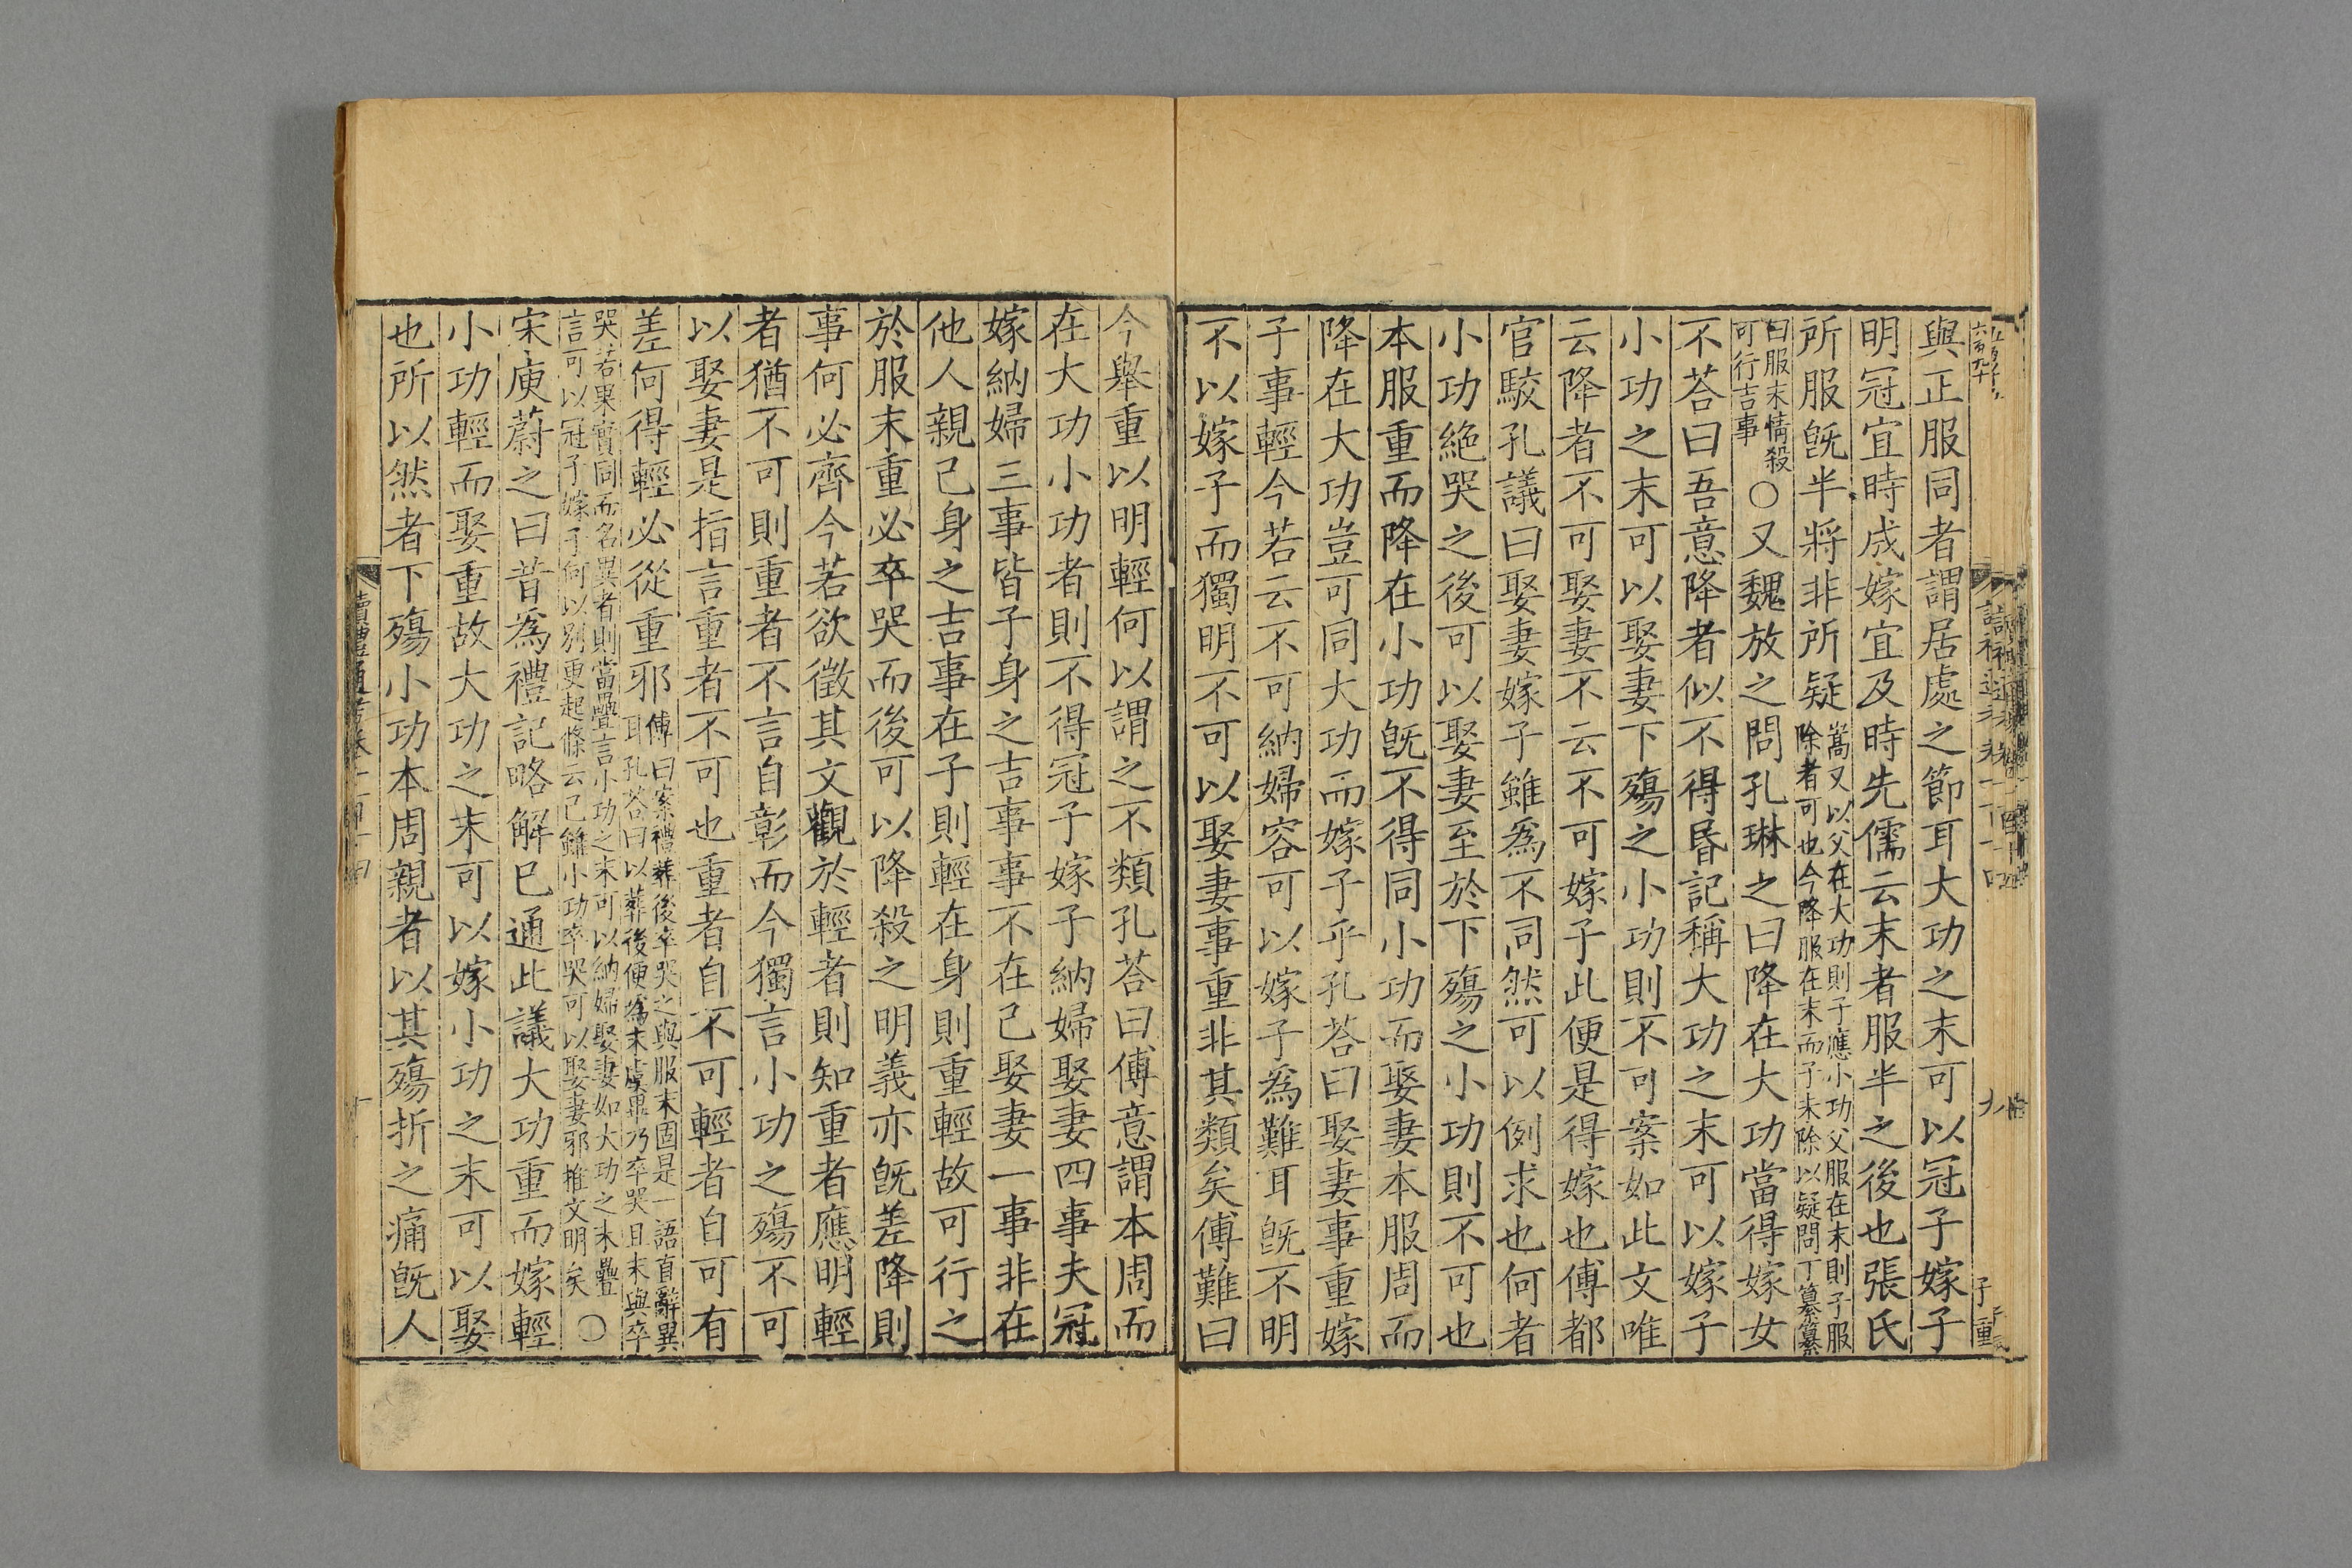 與正服同者謂居處之節耳大功之末可以冠子嫁子
明冠宜時成嫁宜及時先儒云末者服半之後也張氏
所服旣半將非所疑
嵩又以父在大功則子應小功父服在末則子服
除者可也今降服在末而子未除以疑問丁纂纂
曰服末情殺
可行吉事
○又魏放之問孔琳之曰降在大功當得嫁女
不荅曰吾意降者似不得昏記稱大功之末可以嫁子
小功之末可以娶妻下殤之小功則不可案如此文唯
云降者不可娶妻不云不可嫁子此便是得嫁也傅都
官駮孔議曰娶妻嫁子雖爲不同然可以例求也何者
小功絶哭之後可以娶妻至於下殤之小功則不可也
本服重而降在小功旣不得同小功而娶妻本服周而
降在大功豈可同大功而嫁子乎孔荅曰娶妻事重嫁
子事輕今若云不可納婦容可以嫁子爲難耳旣不明
不以嫁子而獨明不可以娶妻事重非其類矣傅難曰
今舉重以明輕何以謂之不類孔荅曰傅意謂本周而
在大功小功者則不得冠子嫁子納婦娶妻四事夫冠
嫁納婦三事皆子身之吉事事不在己娶妻一事非在
他人親己身之吉事在子則輕在身則重輕故可行之
於服末重必卒哭而後可以降殺之明義亦旣差降則
事何必齊今若欲徵其文觀於輕者則知重者應明輕
者猶不可則重者不言自彰而今獨言小功之殤不可
以娶妻是指言重者不可也重者自不可輕者自可有
差何得輕必從重邪
傅曰案禮葬後卒哭之與服末固是一語直辭異
耳孔荅曰以葬後便爲末虞畢乃卒哭且末與卒
哭若果實同而名異者則當疊言小功之末可以納婦娶妻如大功之末疊
言可以冠子嫁子何以別更起條云己雖小功卒哭可以娶妻邪推文明矣
○
宋庾蔚之曰昔爲禮記略解已通此議大功重而嫁輕
小功輕而娶重故大功之末可以嫁小功之末可以娶
也所以然者下殤小功本周親者以其殤折之痛旣人